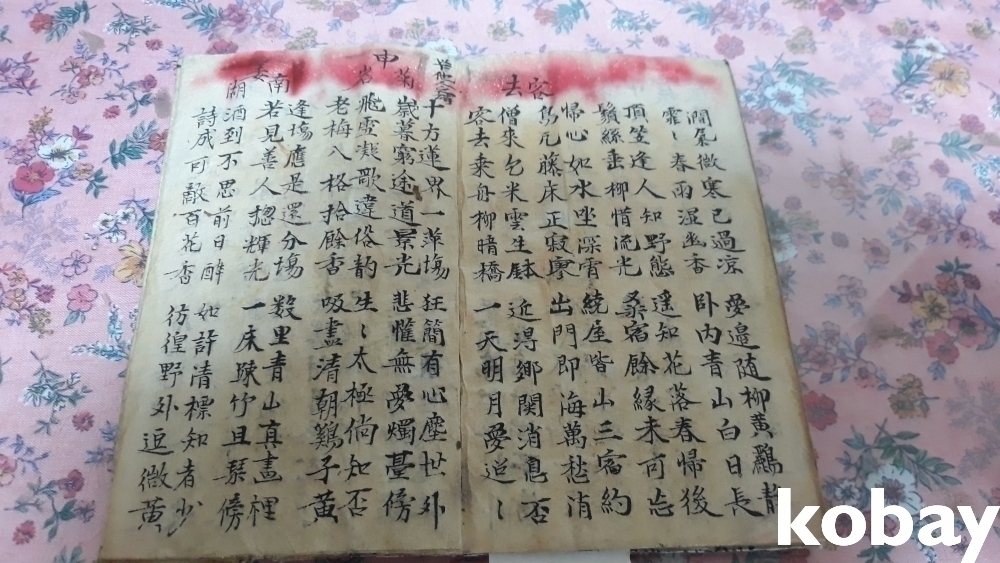 客去
氣微寒已過凉
霏〻春雨湿幽香
頂笠逢人知野態
鬚絲垂柳惜流光
帰心如水坐深宵
烏几藤床正寂寥
僧來乞米雲生鉢
客去乗舟柳暗橋
夢邉随柳黄鸝静
卧内青山白日長
遥知花落春帰後
桑宿餘縁未可忘
繞座皆山三宿約
出門即海萬愁消
近淂鄉関消息否
一天明月夢迢〻
申
南
十方蓮界一萍塲
歲業窮途道景光
飛雪凝歌違俗韵
老梅八格拾餘香
逢塲應是還分塲
若見善人揔輝光
酒到不思前日醉
詩成可敵百花香
狂簡有心塵世外
悲懽無夢燭䑓傍
生〻太極倘知否
吸盡清朝鷄子黄
數里青山真畫裡
一床踈竹且琹傍
如許清標知者少
彷徨野外近微黄
kobay